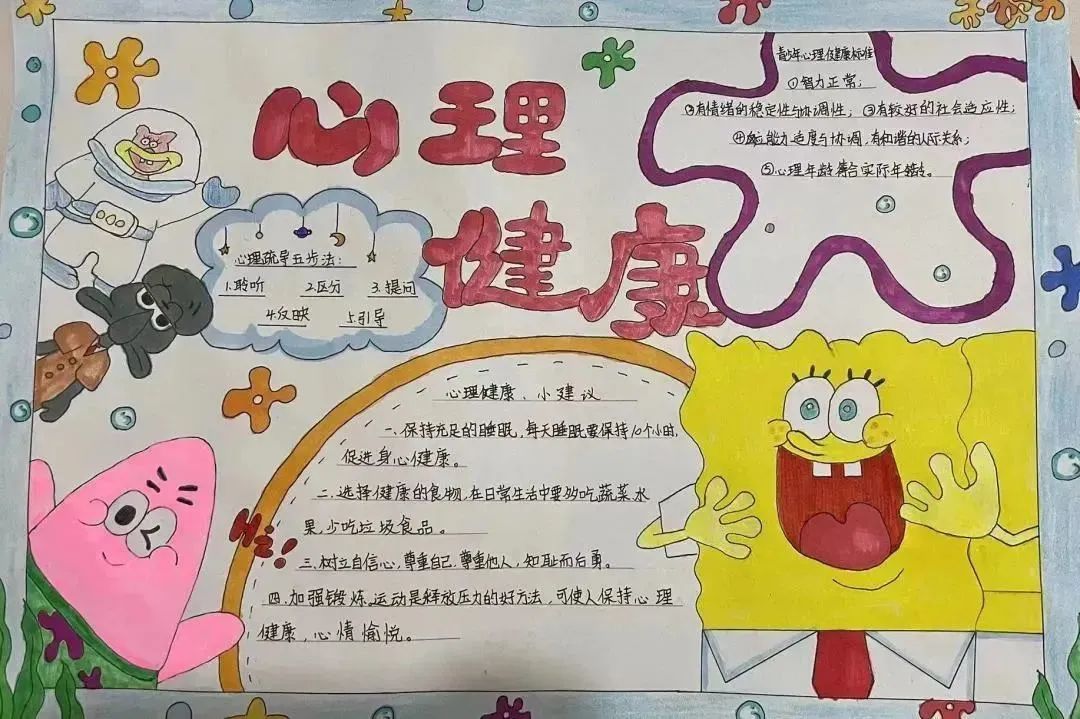 心理
健康
青少年心理健康标准
①智力正常；
②有情绪的稳定性与协调性；③有较好的社会适应性；
④能力适度与协调，有和谐的人际关系；
⑤心理年龄符合实际年龄。
心理疏导五步法：
1.聆听 2.区分 3.提问
4.反映 5.引导
心理健康、小建议
一、保持充足的睡眠，每天睡眠要保持10个小时，
促进身心健康。
二、选择健康的食物，在日常生活中要多吃蔬菜水
果，少吃垃圾食品。
三、树立自信心，尊重自己，尊重他人，知耻而后勇。
四、加强锻炼，运动是释放压力的好方法，可使人保持心理
健康，心情愉悦。
Hi!